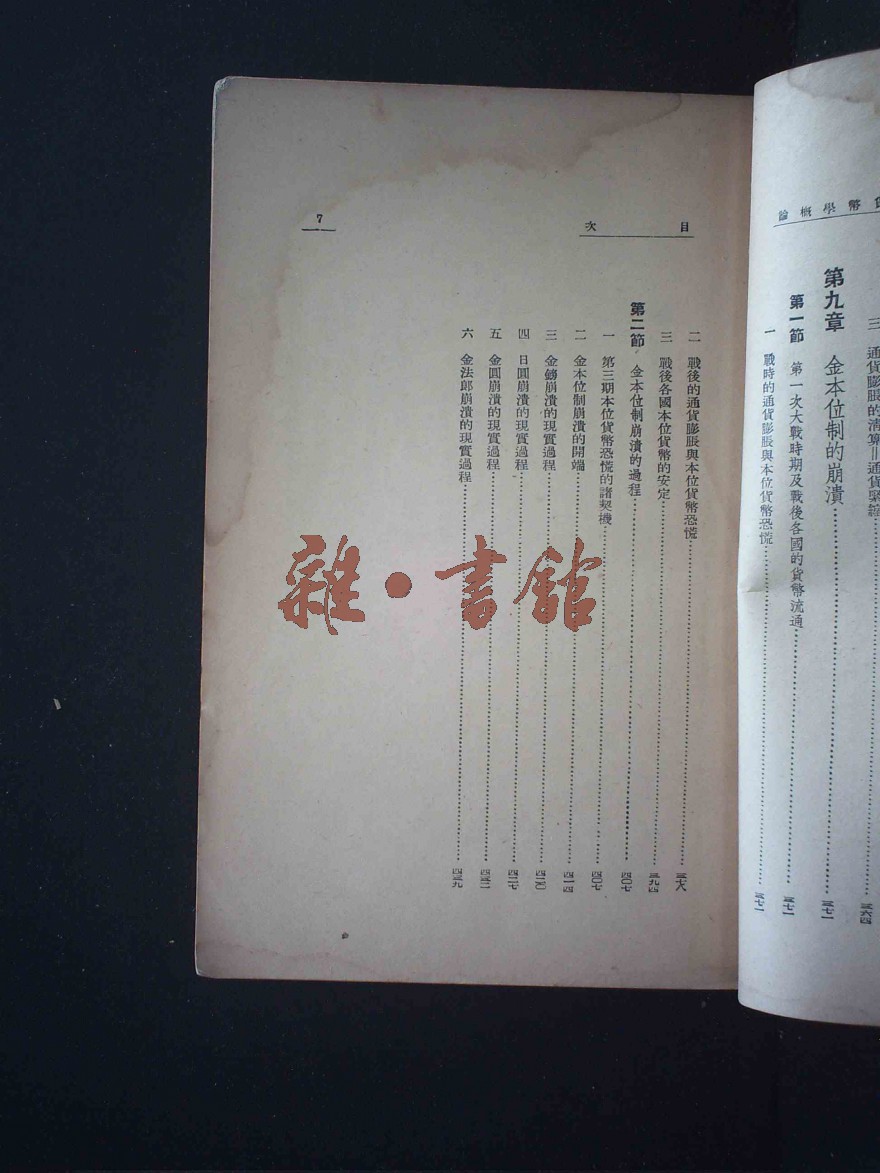 貨幣學概論
三 通貨膨脹的清算=通貨緊縮……三六四
第九章 金本位制的崩潰……三七一
第一節 第一次大戰時期及戰後各國的貨幣流通……三七一
一 戰時的通貨膨脹與本位貨幣恐慌……三七一
目次
7
二 戰後的通貨膨脹與本位貨幣恐慌……三七八
三 戰後各國本位貨幣的安定……三九四
第二節 金本位制崩潰的過程……四〇七
一 第三期本位貨幣恐慌的諸契機……四〇七
二 金本位制崩潰的開端……四一四
三 金鎊崩潰的現實過程……四二〇
四 日圓崩潰的現實過程……四二七
五 金圓崩潰的現實過程……四三二
六 金法郎崩潰的現實過程……四三九
雜·書館